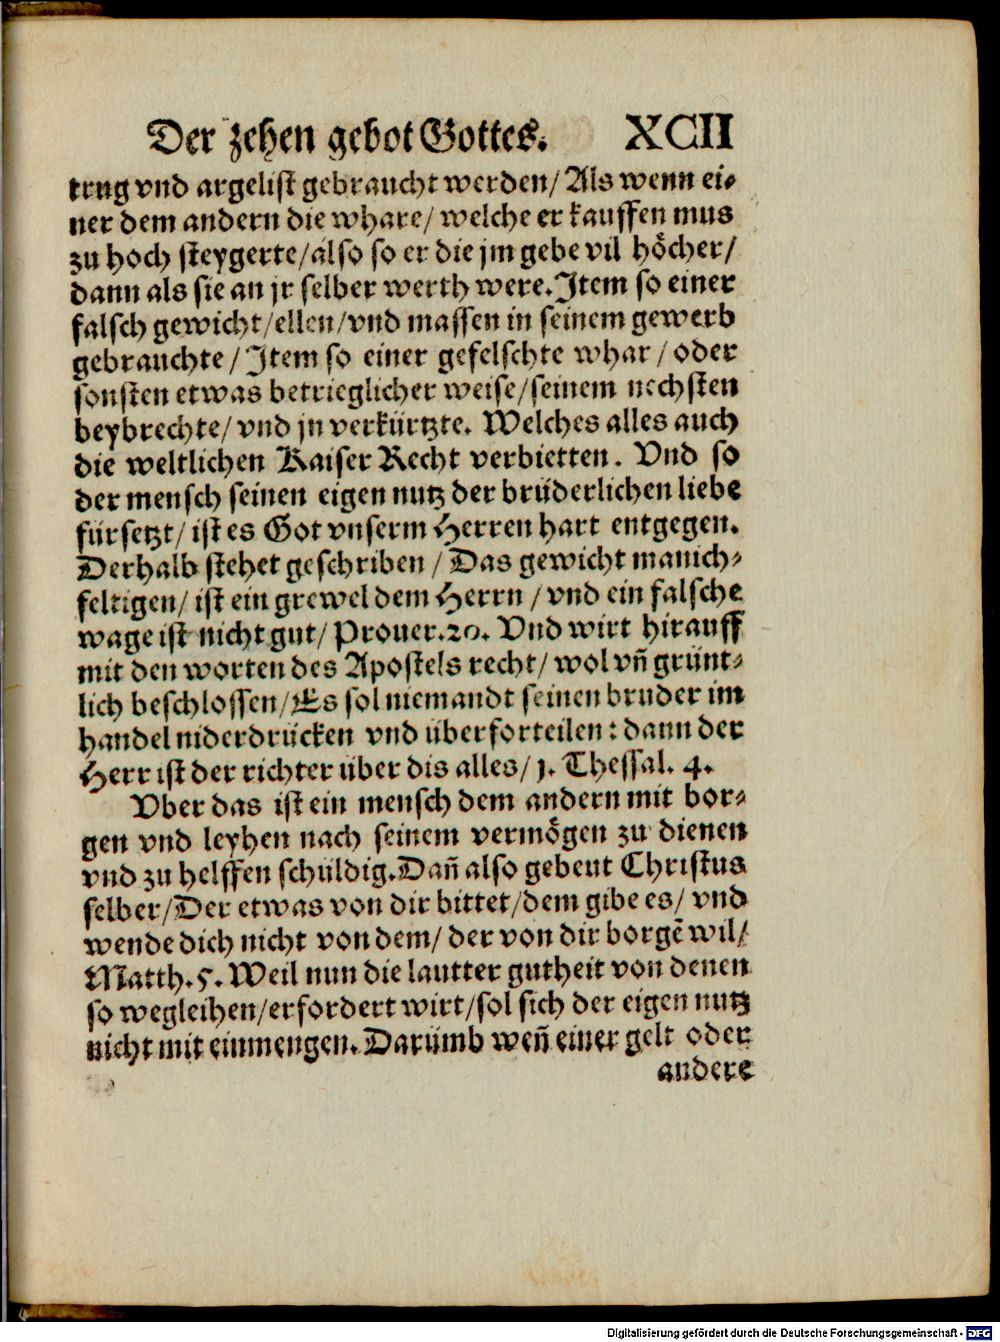 Der zehen gebot Gottes. XCII
trug vnd argelist gebraucht werden/ Als wenn ei-
ner dem andern die whare/ welche er kauffen mus
zu hoch steygerte/also so er die jm gebe vil höcher/
dann als sie an jr selber werth were. Item so einer
falsch gewicht/ellen/vnd massen in seinem gewerb
gebrauchte/ Item so einer gefelschte whar/ oder
sonsten etwas betrieglicher weise/seinem nechsten
beybrechte/ vnd jn verkürtzte. Welches alles auch
die weltlichen Kaiser Recht verbietten. Vnd so
der mensch seinen eigen nutz der brüderlichen liebe
fürsetzt/ ist es Got vnserm Herren hart entgegen.
Derhalb stehet geschriben/ Das gewicht manich-
feltigen/ ist ein grewel dem Herrn/ vnd ein falsche
wage ist nicht gut/ Prouer.20. Vnd wirt hirauff
mit den worten des Apostels recht/ wol vñ grünt-
lich beschlossen/Es sol niemandt seinen bruder im
handel niderdrücken vnd überforteilen: dann der
Herr ist der richter über dis alles/ 1. Thessal. 4.
Vber das ist ein mensch dem andern mit bor-
gen vnd leyhen nach seinem vermögen zu dienen
vnd zu helffen schüldig. Dañ also gebeut Christus
selber/Der etwas von dir bittet/dem gibe es/ vnd
wende dich nicht von dem/ der von dir borgẽ wil/
Matth.5. Weil nun die lautter gutheit von denen
so wegleihen/erfordert wirt/sol sich der eigen nutz
nicht mit einmengen. Darümb weñ einer gelt oder
andere
Digitalisierung gefördert durch die Deutsche Forschungsgemeinschaft - DFG